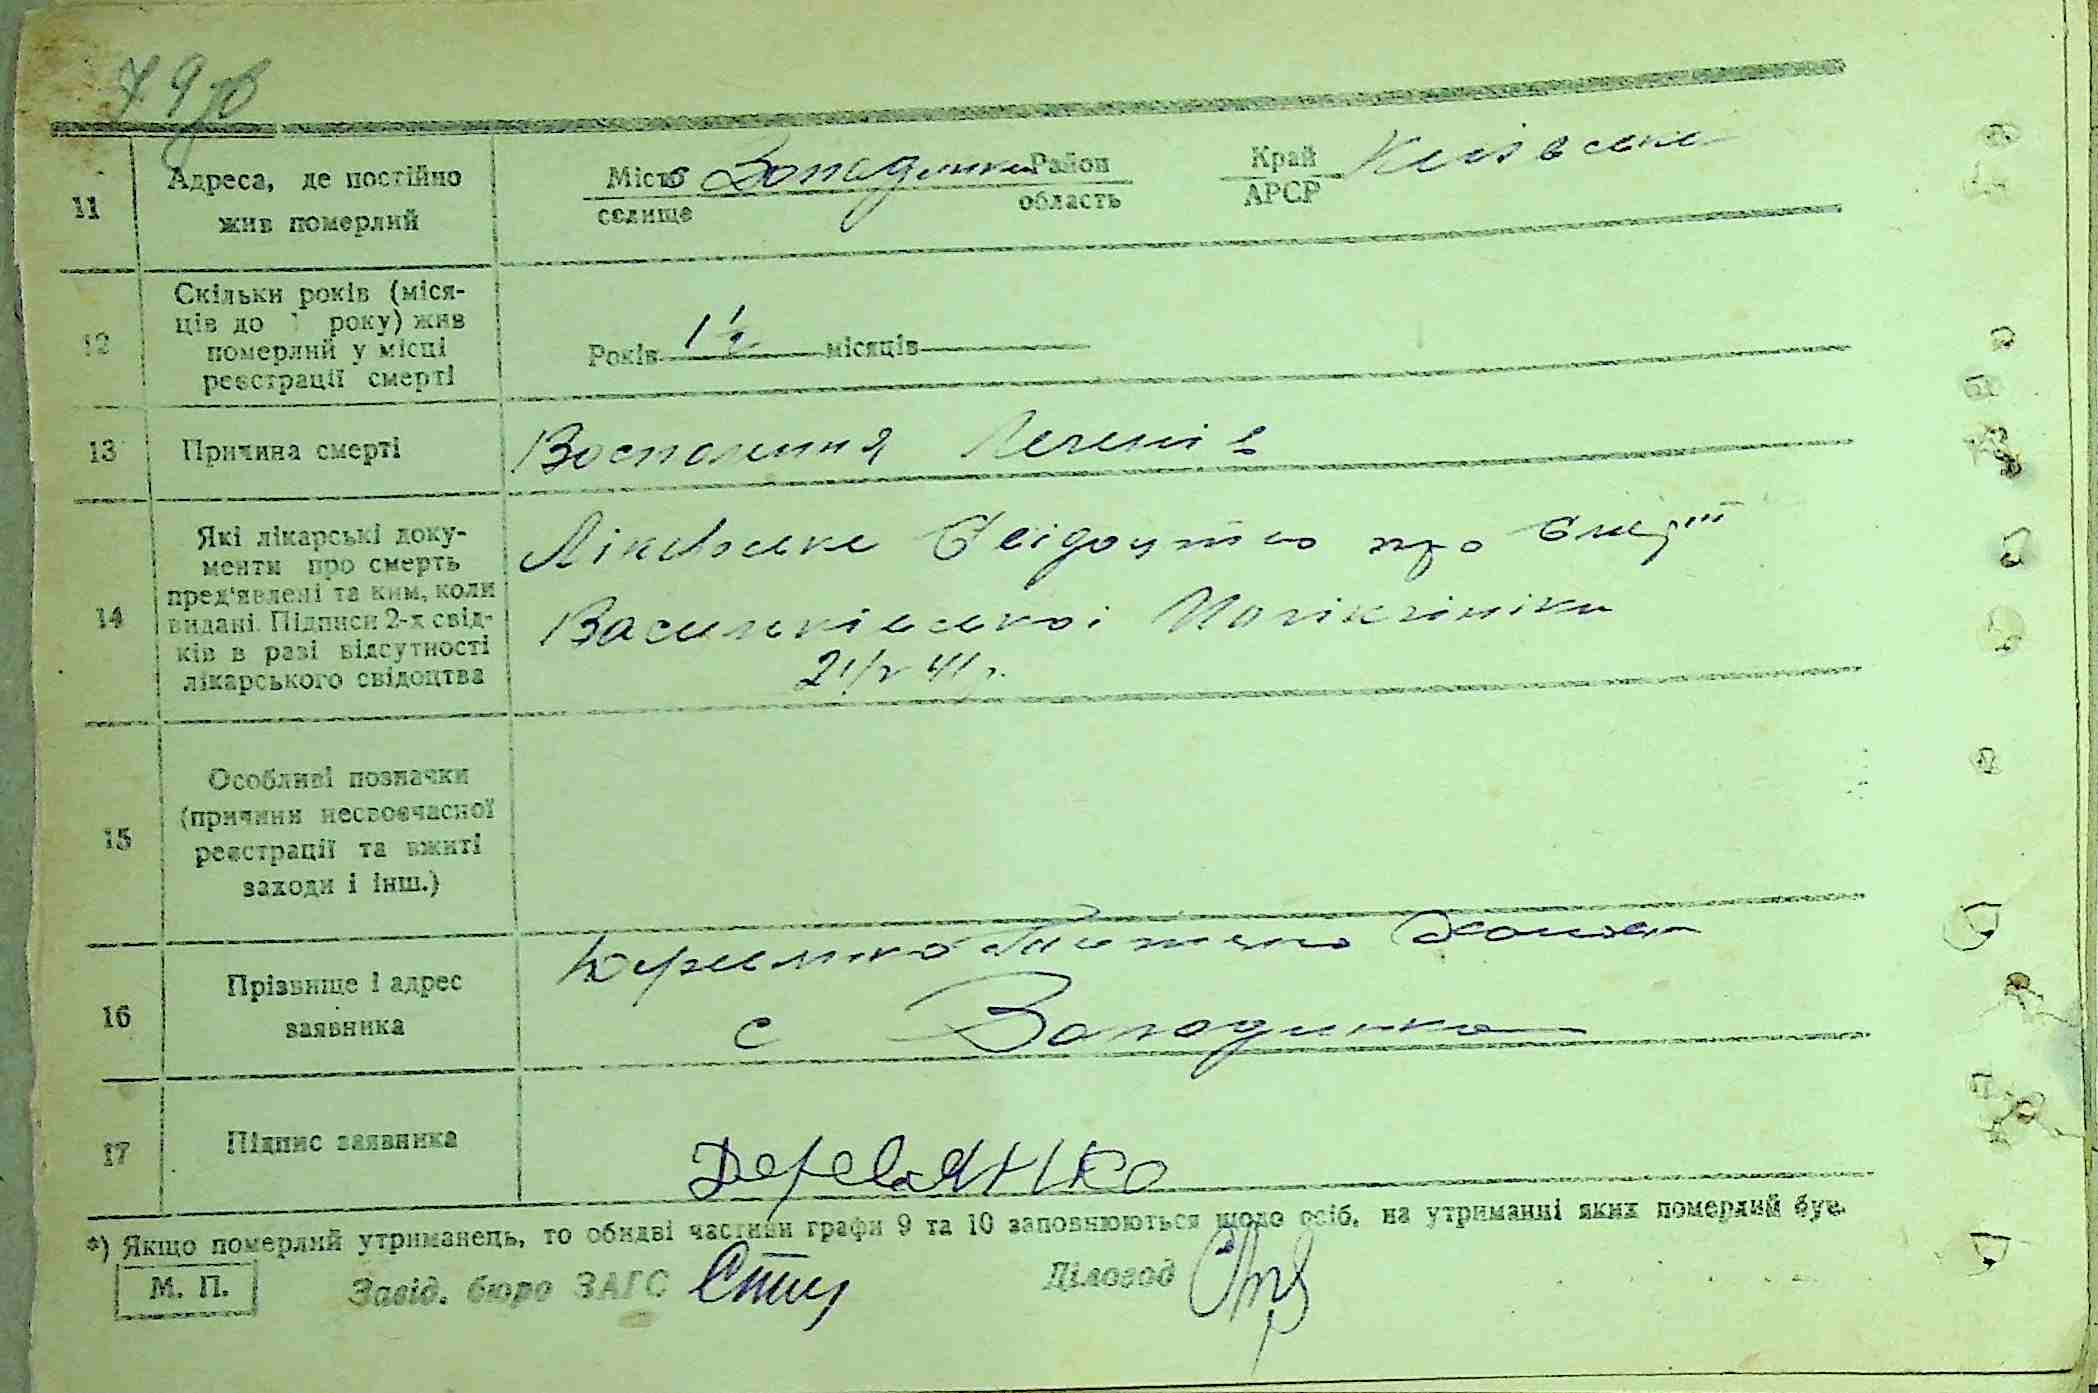 79зв
11 Адреса, де постійно жив померлий
Місто селище Западинка Район область Край АРСР Київська
12 Скільки років (міся-
ців до 1 року) жив
померлий у місці
реєстрації смерті
Років 1½ місяців
13 Причина смерті
Воспаления Легенів
14 Які лікарські доку-
менти про смерть
пред'явлені та ким, коли
видані. Підписи 2-х свід-
ків в разі відсутності
лікарського свідоцтва
Лікарське Свідоцтво про смерть
Васильківської Поліклініки
41р.
15 Особливі позначки
(причини несвоєчасної
реєстрації та вжиті
заходи і інш.)
16 Прізвище і адрес
заявника
с Западинка
17 Підпис заявника
Деревянко
*) Якщо померлий утриманець, то обидві частини графи 9 та 10 заповнюються щодо осіб, на утриманні яких померлий був.
М. П. Завід. бюро ЗАГС Діловод